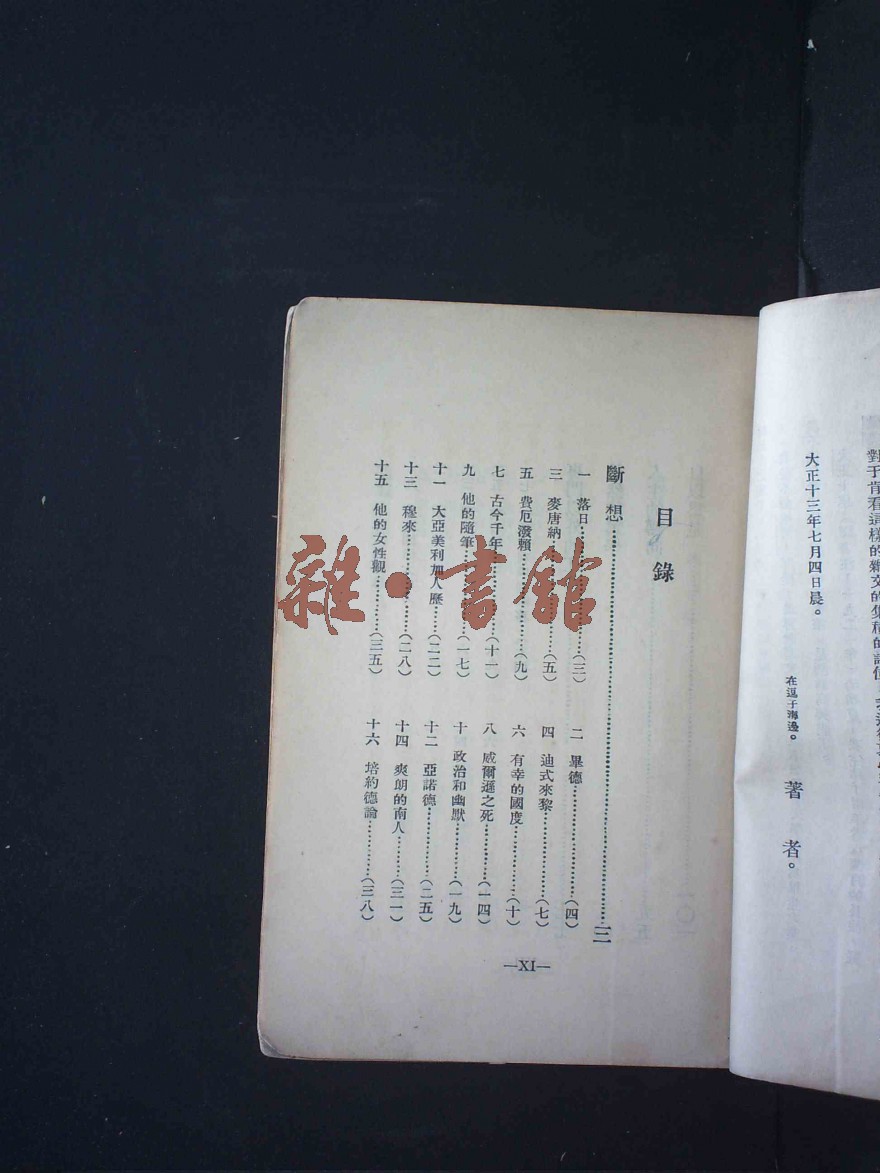 對于肯看這樣的雜文的集積的諸
大正十三年七月四日晨。
在逗子海邊。
著者。
目錄
斷想……………………三
一 落日…………(三)
二 畢德…………(四)
三 麥唐納…………(五)
四 迪式來黎…………(七)
五 費厄潑賴…………(九)
六 有幸的國度…………(十)
七 古今千年…………(十一)
八 威爾遜之死…………(一四)
九 他的隨筆…………(一七)
十 政治和幽默…………(一九)
十一 大亞美利加人歷…………(二二)
十二 亞諾德…………(二五)
十三 穆來…………(二八)
十四 爽朗的南人…………(三一)
十五 他的女性觀…………(三五)
十六 培約德論…………(三八)
—XI—
雜·書館